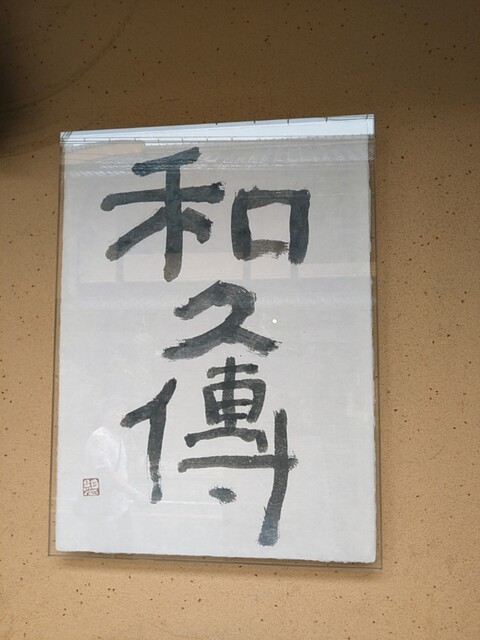 和久傳